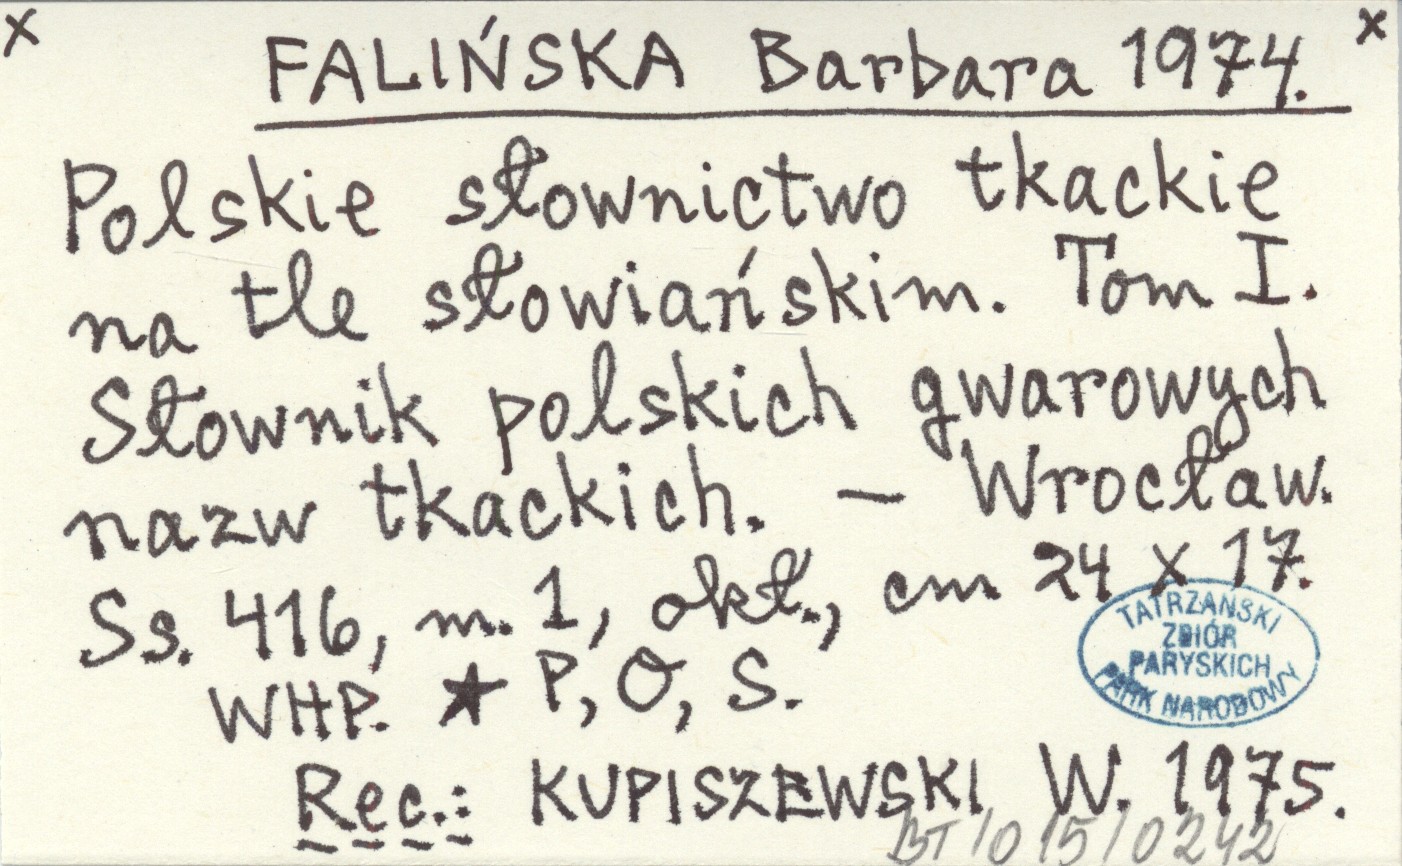 x x
FALIŃSKA Barbara 1974.
Polskie słownictwo tkackie
na tle słowiańskim. Tom I.
Słownik polskich gwarowych
nazw tkackich. — Wrocław.
Ss. 416, m. 1, okł., cm 24 x 17.
WHP. ★ P, O, S.
TATRZAŃSKI
ZBIÓR
PARYSKICH
PARK NARODOWY
Rec.: KUPISZEWSKI W. 1975.
BT/015/0242